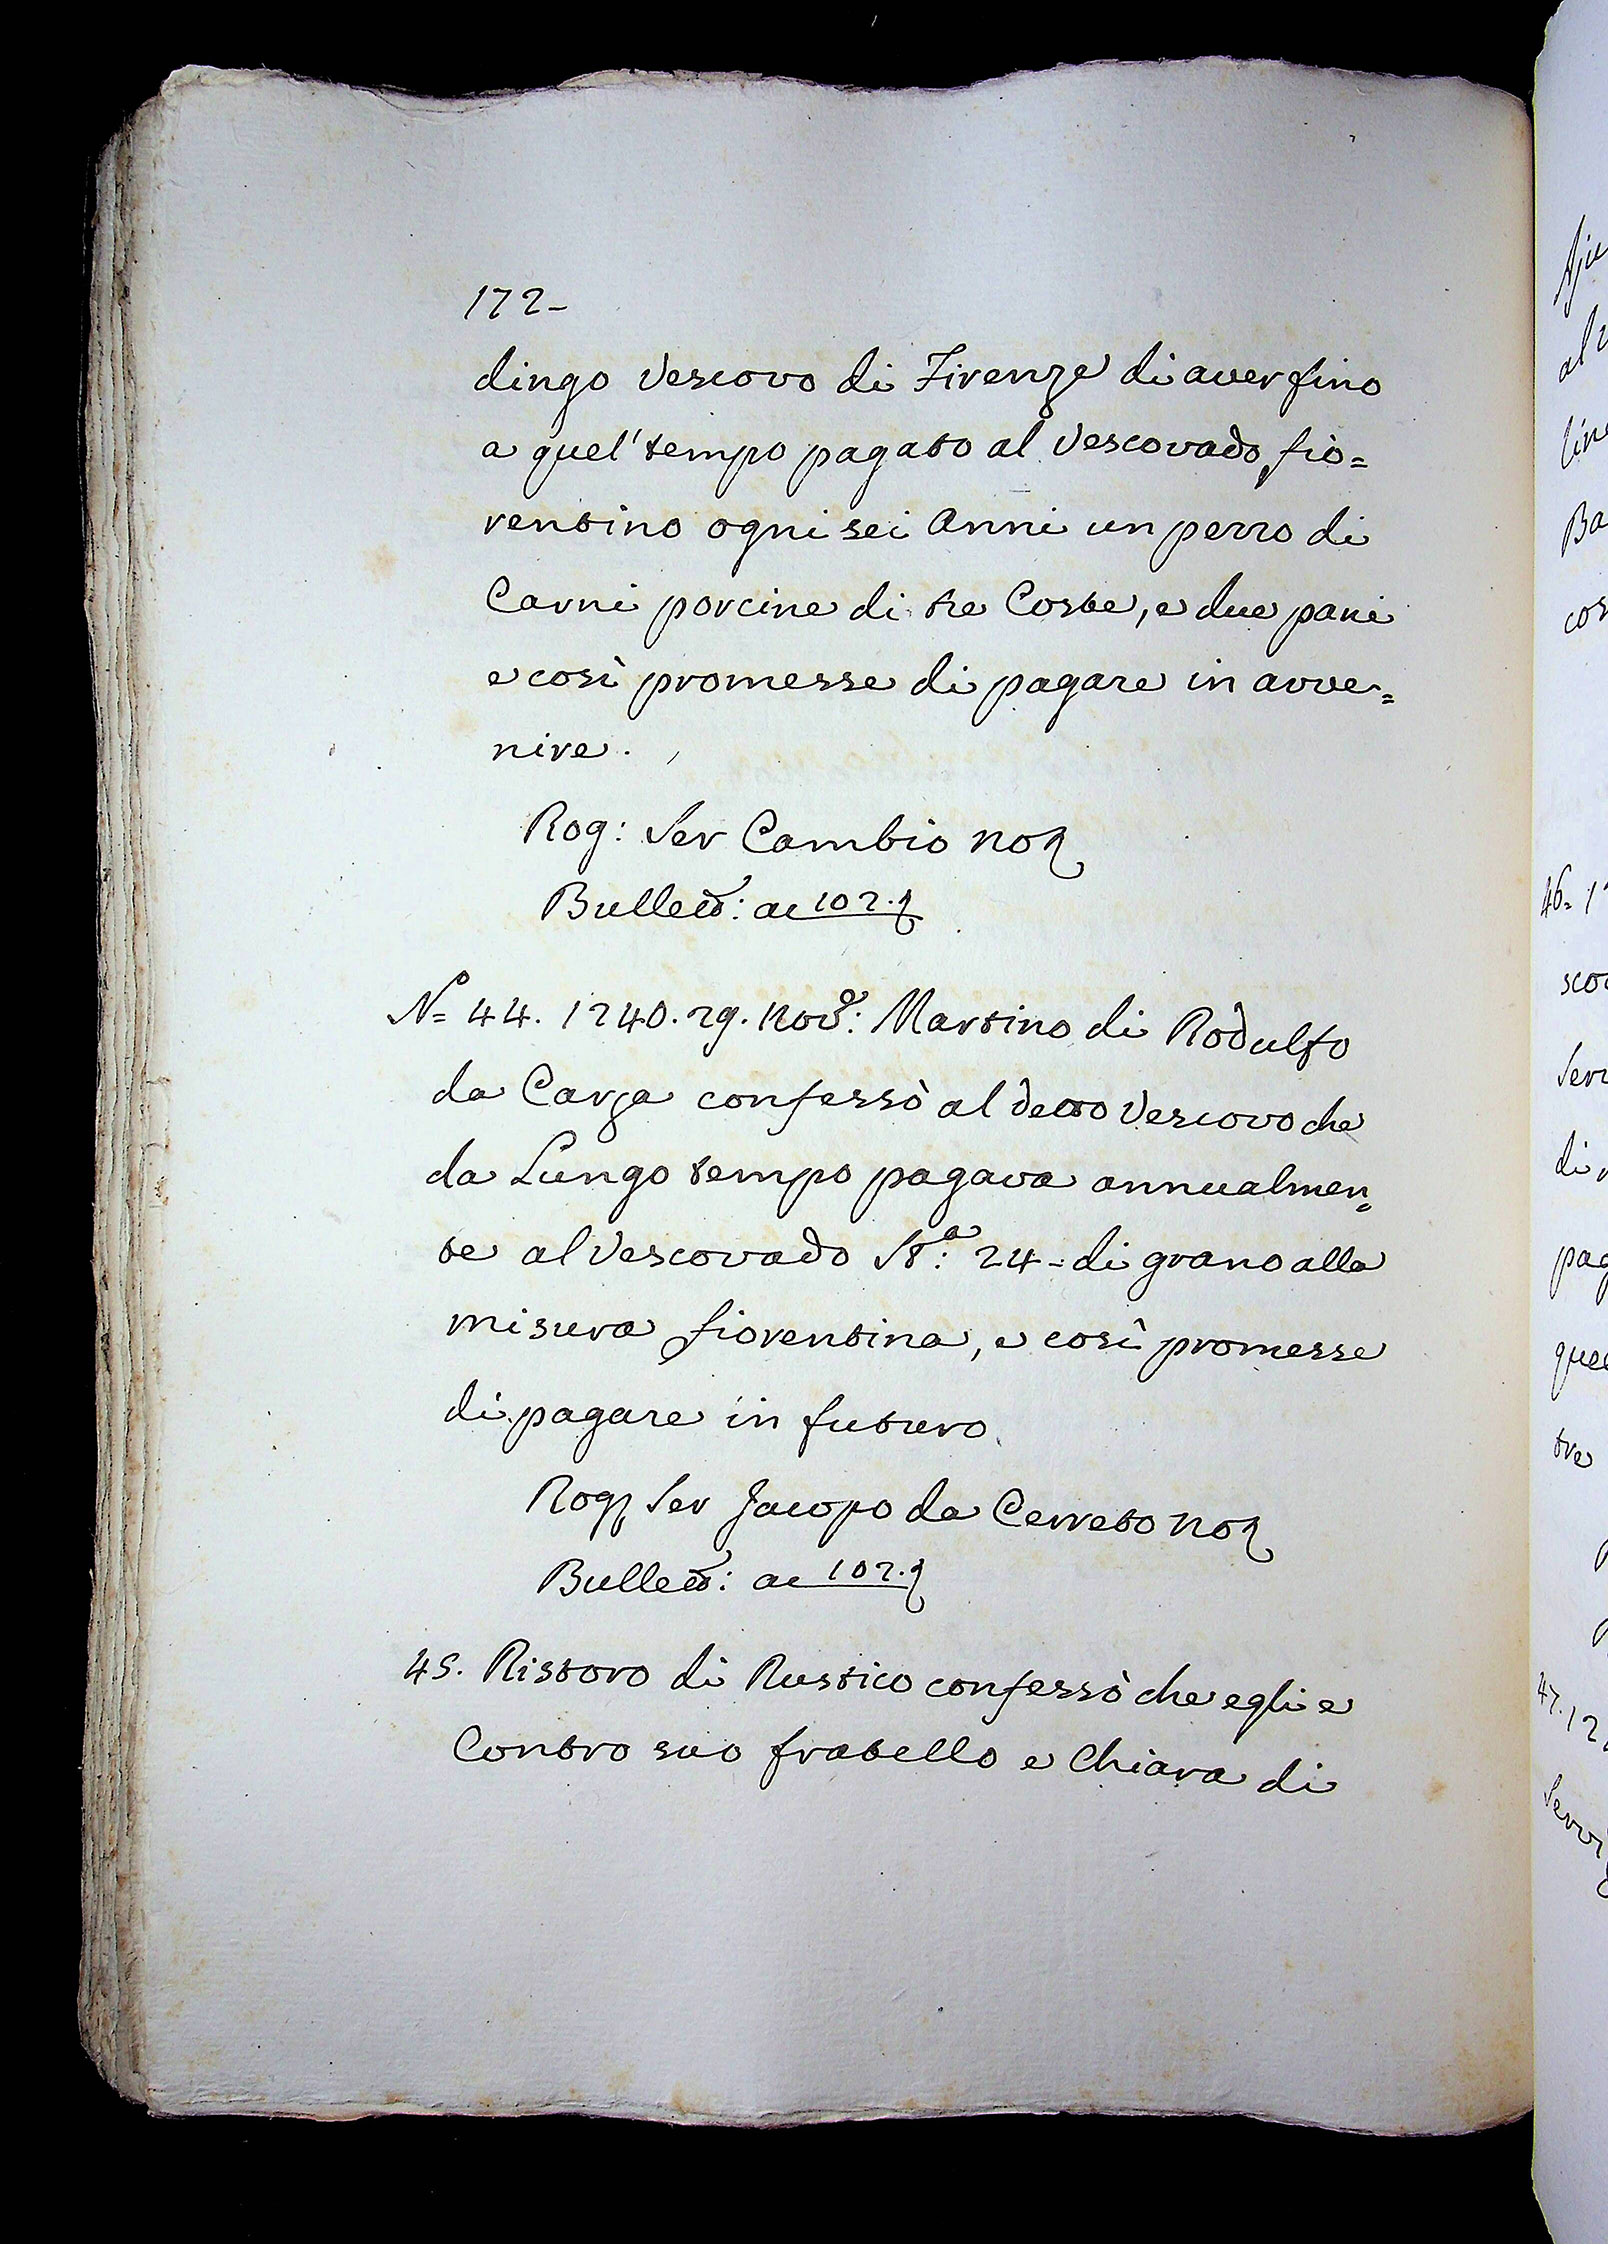 172-
dingo Vescovo di Firenze di aver fino
a quel' tempo pagato al Vescovado fio=
rentino ogni sei Anni un pezzo di
Carni porcine di tre Coste, e due pani
e così promesse di pagare in avve=
nire.
Rog: Ser Cambio not
Bullett: a c 102.
Nº 44. 1240. 29. Nov.e: Martino di Rodulfo
da Carza confessò al detto Vescovo che
da Lungo tempo pagava annualmen=
te al Vescovado St.a: 24 = di grano alla
misura fiorentina, e così promesse
di pagare in futuro
Rog Ser Jacopo da Cerreto not
Bullett: a c 102.
45. Ristoro di Rustico confessò che egli e
Contro suo fratello e Chiara di
al
Ba
cos
46= 1
sco
Ser
di
pag
que
tre
47. 12
Serv